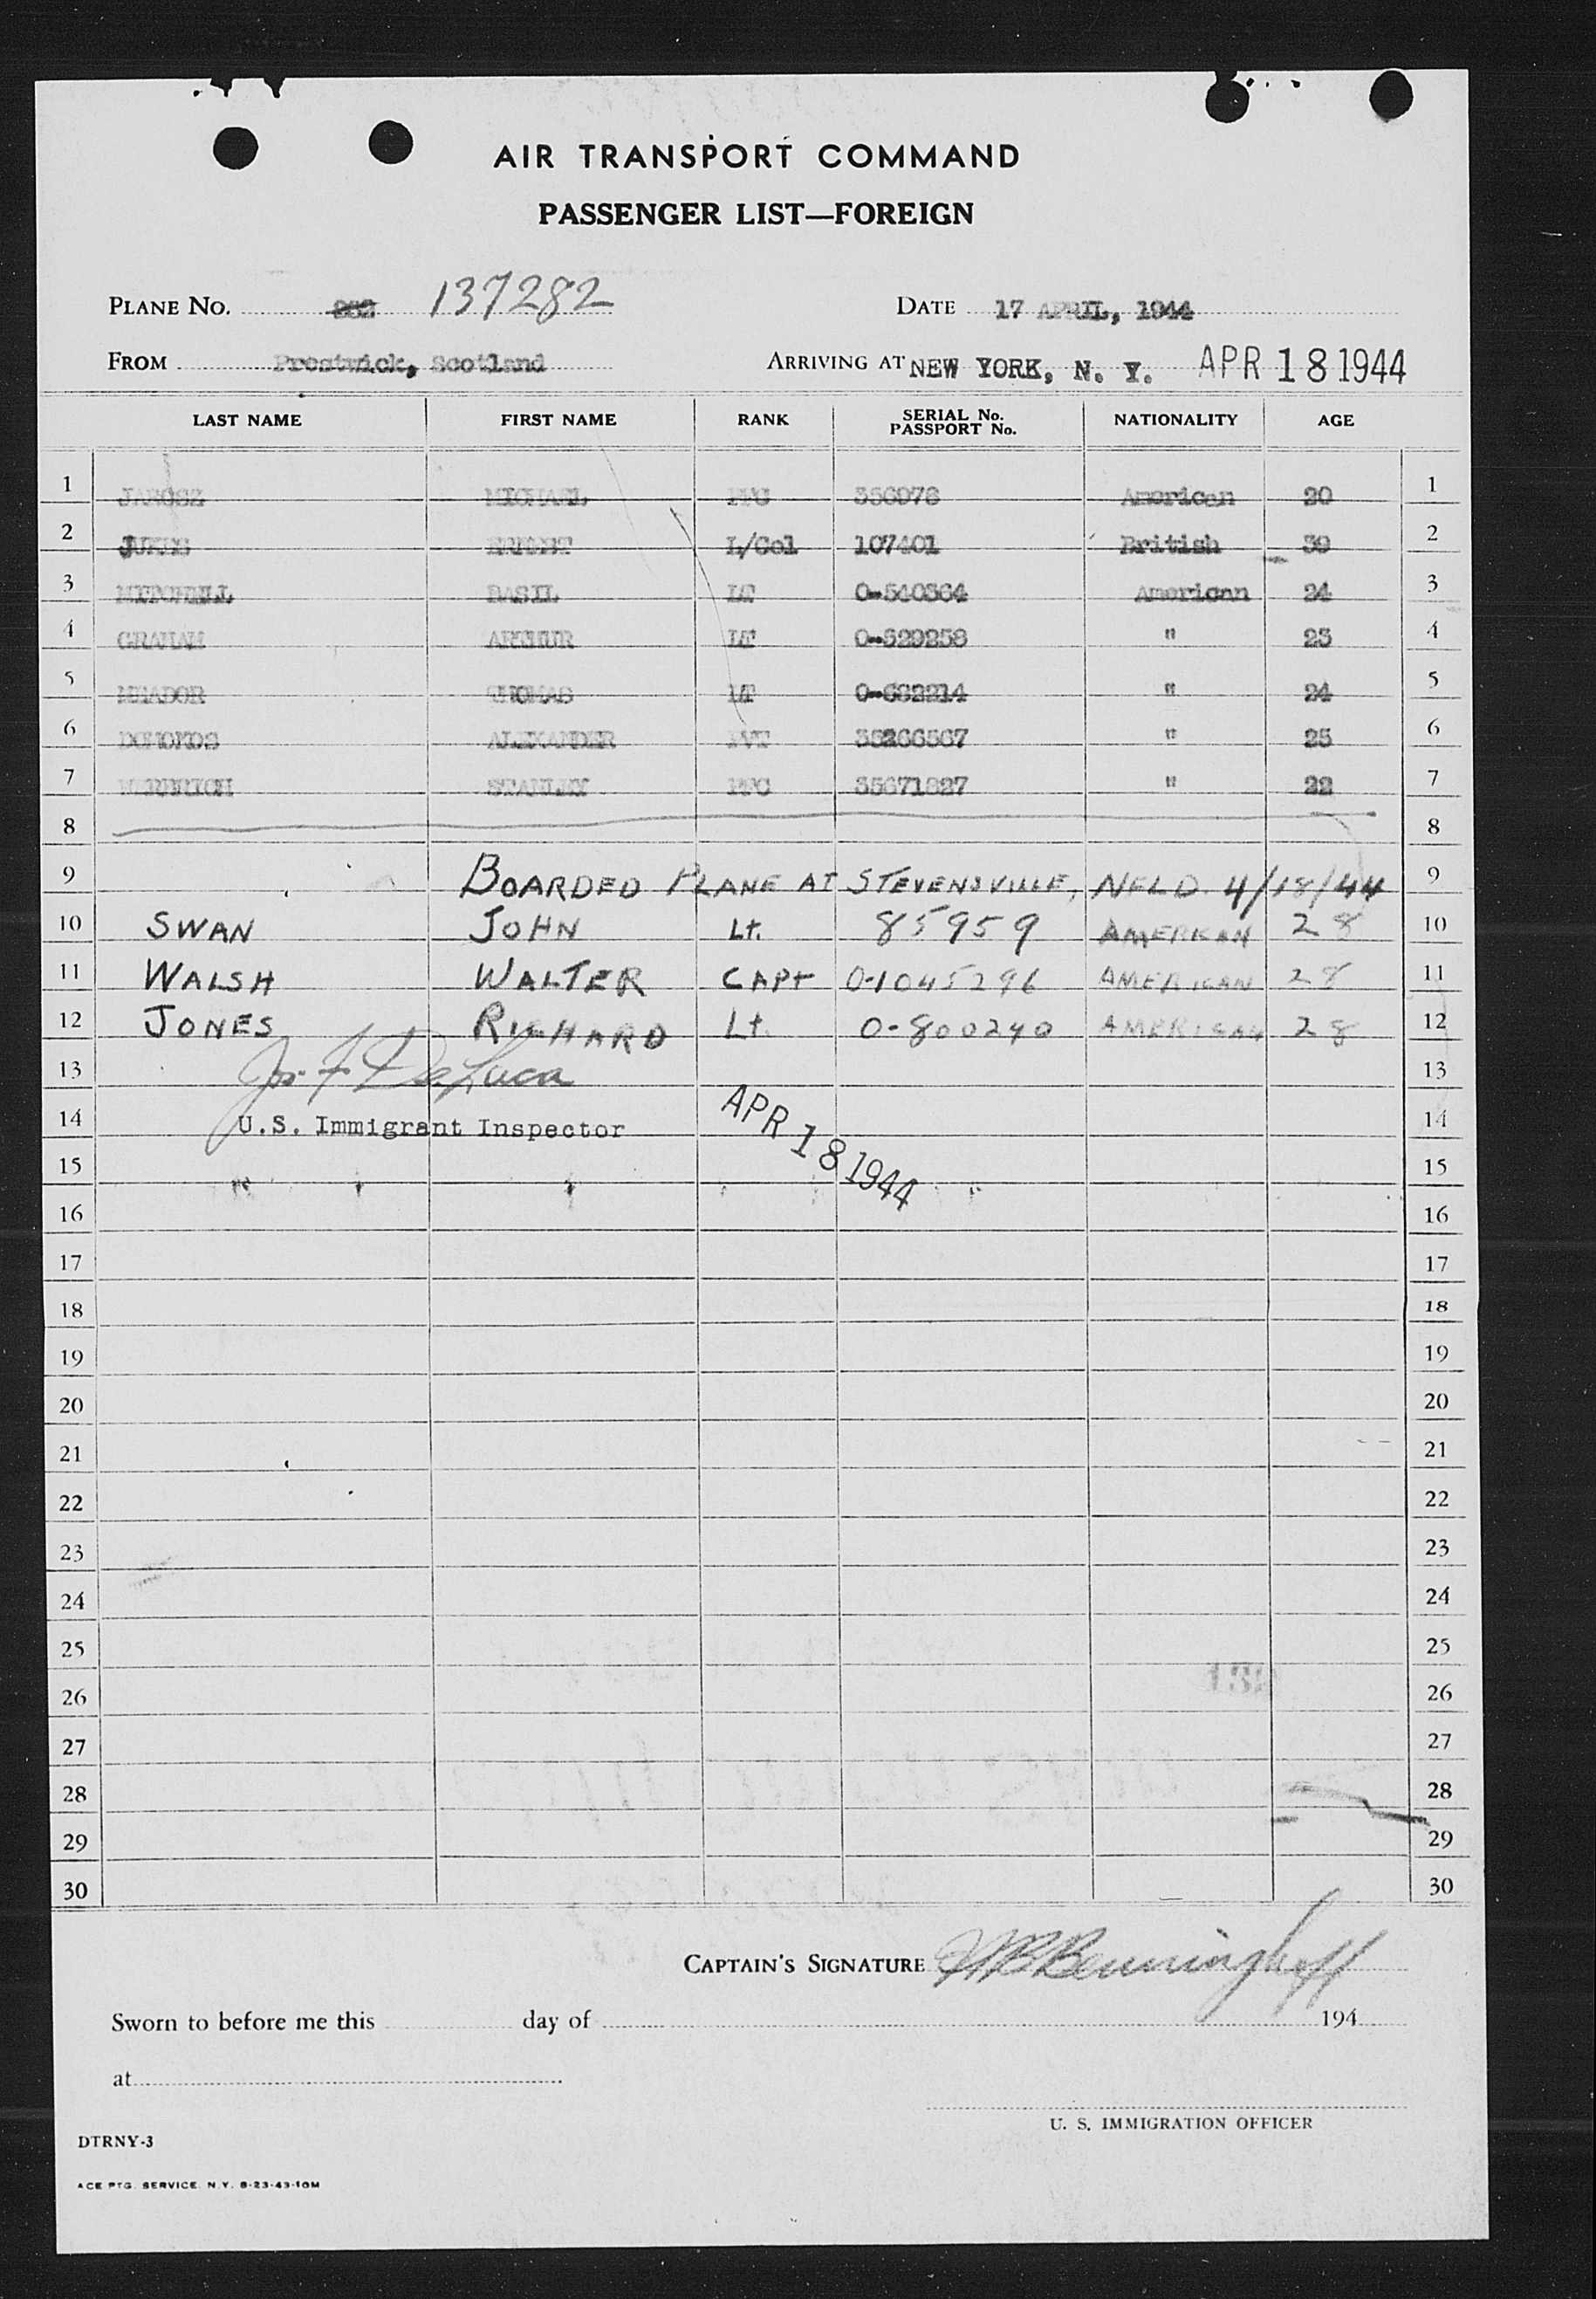 AIR TRANSPORT COMMAND
PASSENGER LIST—FOREIGN
PLANE No. 137282 DATE 17 APRIL, 1944
FROM Prestwick, Scotland ARRIVING AT NEW YORK, N. Y. APR 18 1944
LAST NAME FIRST NAME RANK SERIAL No. PASSPORT No. NATIONALITY AGE
1 JAROSZ MICHAEL PFC 356978 American 20 1
2 JUKES ERNEST L/Col 107401 British 39 2
3 MITCHELL BASIL LT O-540364 American 24 3
4 GRAHAM ARTHUR LT O-529258 " 23 4
5 MEADOR THOMAS LT O-682214 " 24 5
6 DOMOKOS ALEXANDER PVT 35266567 " 25 6
7 STANLEY PFC 35671827 " 22 7
8 8
9 BOARDED PLANE AT STEVENSVILLE, NFLD. 4/18/44 9
10 SWAN JOHN Lt. 85959 AMERICAN 28 10
11 WALSH WALTER CAPt O-1045296 AMERICAN 28 11
12 JONES RICHARD Lt. O-800240 AMERICAN 28 12
13 Jos. F. DeLuca 13
14 U.S. Immigrant Inspector APR 18 1944 14
15 15
16 16
17 17
18 18
19 19
20 20
21 21
22 22
23 23
24 24
25 25
26 26
27 27
28 28
29 29
30 30
CAPTAIN'S SIGNATURE Benninghoff
Sworn to before me this day of 194
at
U. S. IMMIGRATION OFFICER
DTRNY-3
ACE PTG. SERVICE. N.Y. 8-23-43-10M